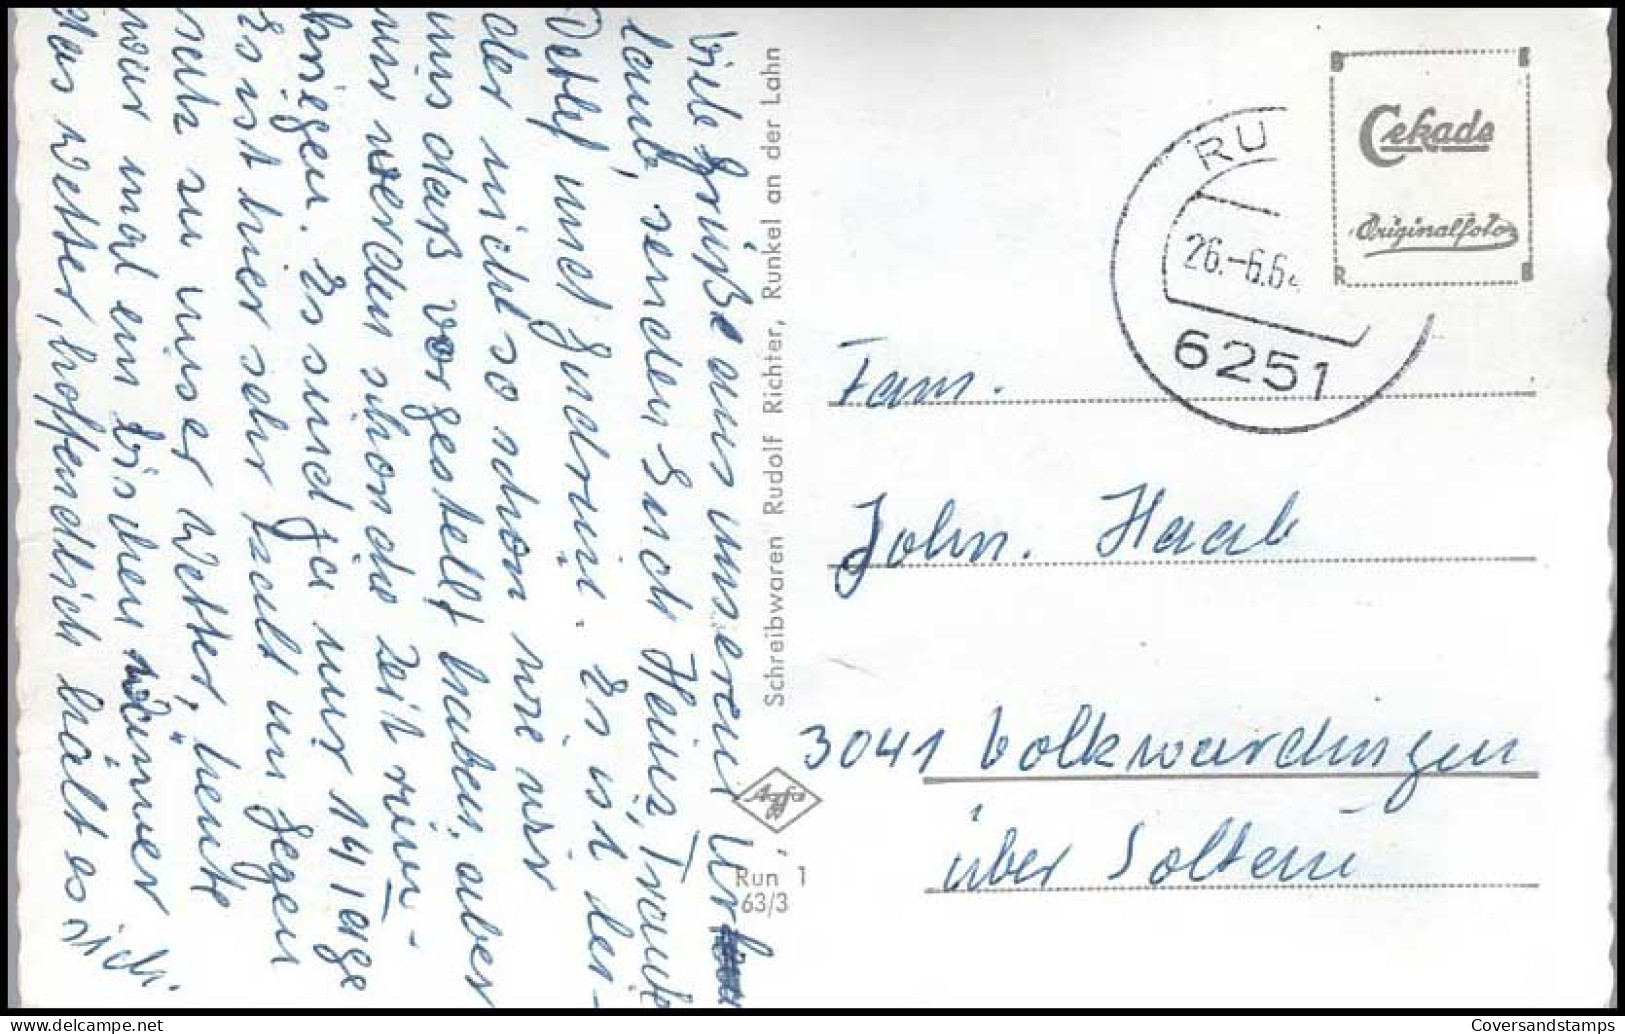 Viele Grüße aus unserem Ur-
laub, senden Euch Heinz, Traute
Detlef und Gudrun. Es ist der-
der nicht so schön wie wir
uns daß vorgestellt haben, aber
wir werden schon die Zeit rum-
kriegen. Es sind ja nur 14 Tage
Es ist hier sehr kalt im Gegen
satz zu unser Wetter, heute
war mal ein bischen wärmer
das Wetter, hoffendlich hält es
sich.
Schreibwaren Rudolf Richter, Runkel an der Lahn
Agfa
Run 1
63/3
RU
26.-6.64
6251
Cekade
Originalfoto
R
Fam.
John. Haab
3041 Volkwardingen
über Soltau
CoversandStamps